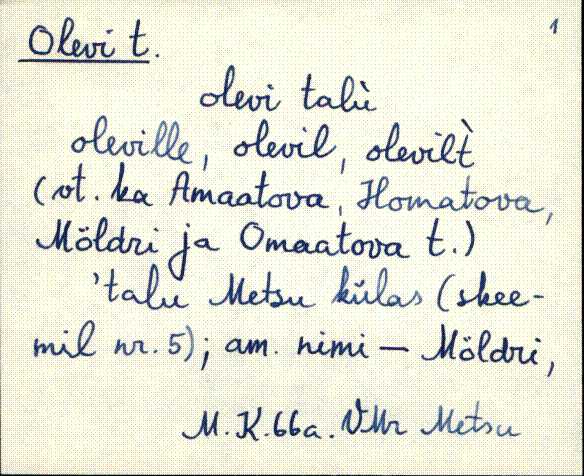 1
Olevi t.
olevi talù
oleville, olevil, olevilt̀
(vt. ka Amaatova, Homatova,
Möldri ja Omaatova t.)
'talu Metsu külas (skee-
mil nr. 5); am. nimi — Möldri,
M.K.66a. VMr Metsu